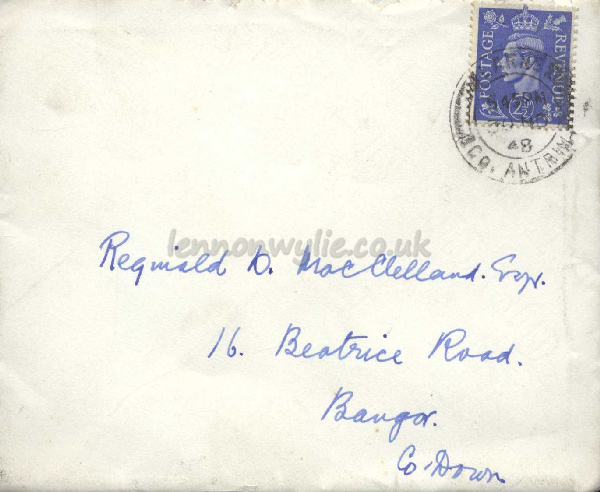 POSTAGE REVENUE
2½
48
CO. ANTRIM
lennonwylie.co.uk
Reginald D. MacClelland. Esqr.
16. Beatrice Road.
Bangor.
Co. Down